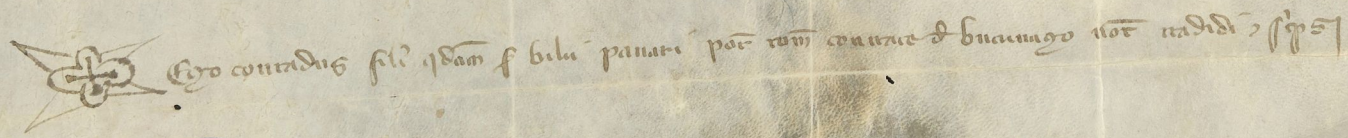 Ego conradus fili' qdam ß bilii panari port rom contrate d' bucinago not tradidi ⁊ scpsi